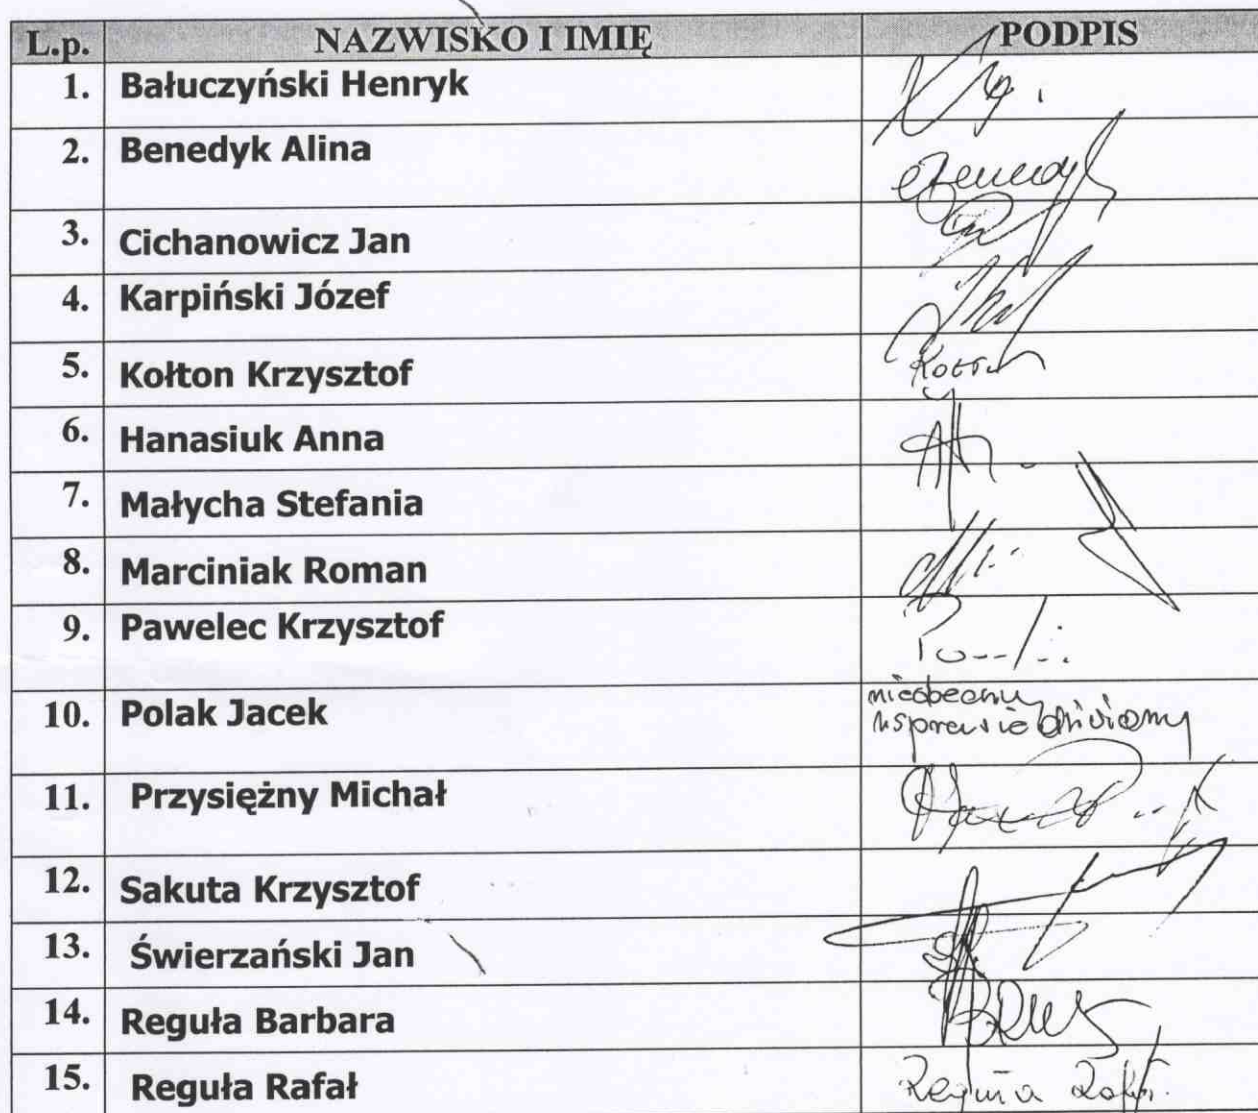 L.p. NAZWISKO I IMIĘ PODPIS
1. Bałuczyński Henryk
2. Benedyk Alina
3. Cichanowicz Jan
4. Karpiński Józef
5. Kołton Krzysztof
6. Hanasiuk Anna
7. Małycha Stefania
8. Marciniak Roman
9. Pawelec Krzysztof
10. Polak Jacek nieobecny
usprawiedliwiony
11. Przysiężny Michał
12. Sakuta Krzysztof
13. Świerzański Jan
14. Reguła Barbara
15. Reguła Rafał Reguła Rafał